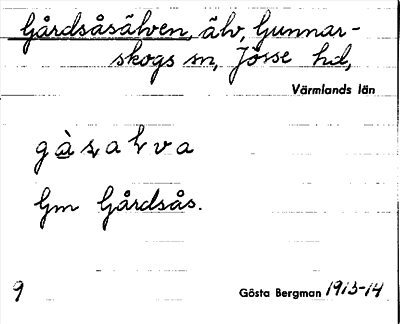 Gårdsåsälven, älv, Gunnar-
skogs sn, Jösse hd,
Värmlands län
Gm Gårdsås.
9 Gösta Bergman 1913-14